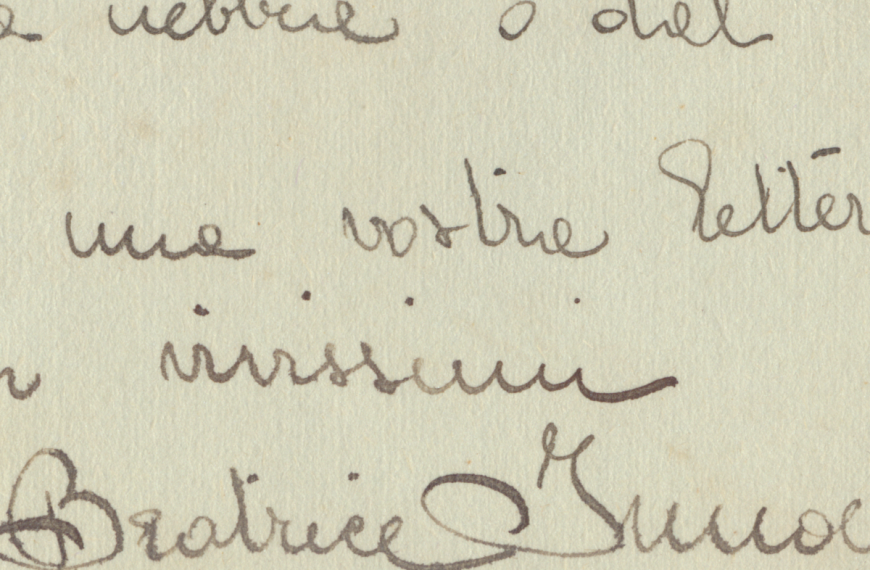 nebbie o dal
una vostra letter
vivissimi
Beatrice